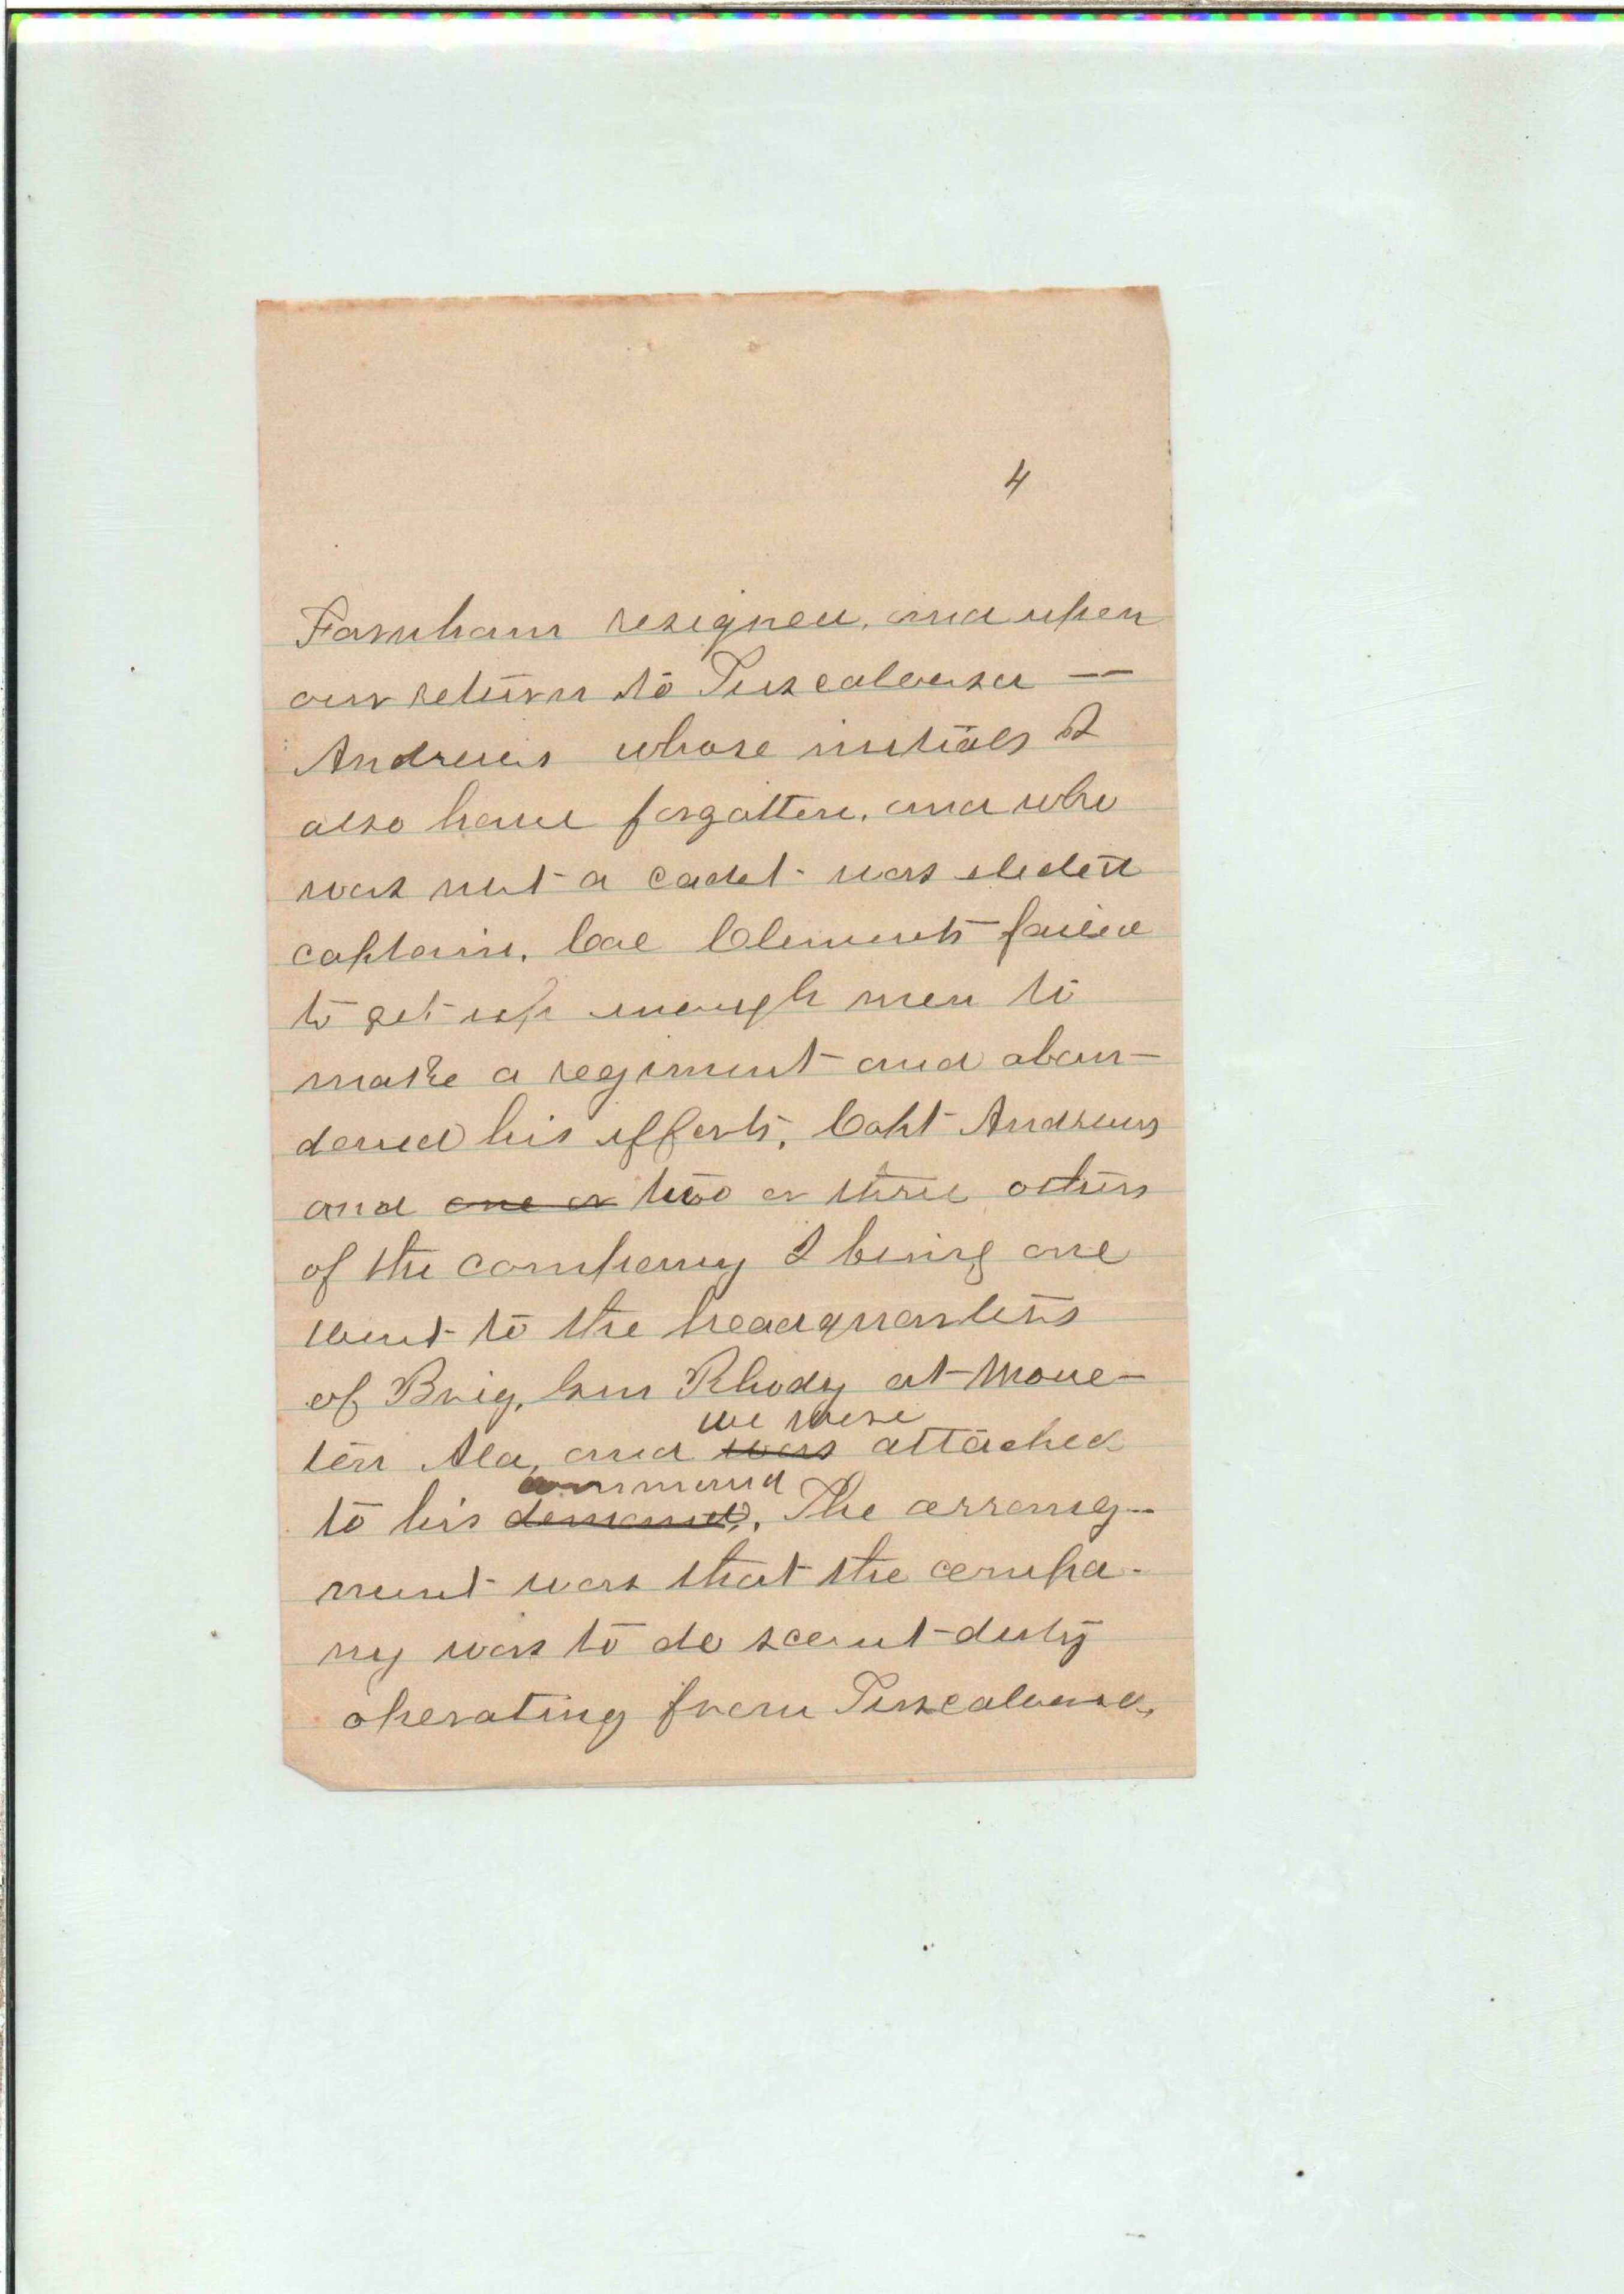 4
Farnham resigned, and upon
our return to Tuscaloosa —
Andrews whose initials I
also have forgotten, and who
was not a cadet was elected
captain. Col Clements failed
to get up enough men to
make a regiment and aban-
doned his efforts. Capt Andrews
and one or two or three others
of the company I being one
went to the headquarters
of Brig. Gen Rhody at Moul-
ton Ala, and was attached
we were
to his demand. The arrang-
command
ment was that the compa-
ny was to do scout duty
operating from Tuscaloosa,